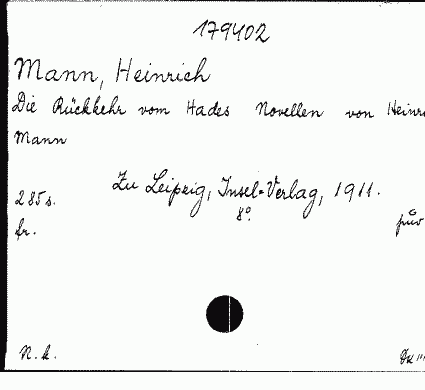 179402
Mann, Heinrich
Die Rückkehr vom Hades Novellen von Heinr
Mann
Zu Leipzig, Insel-Verlag, 1911.
285 s. 8°.
fr. pův
N. k.